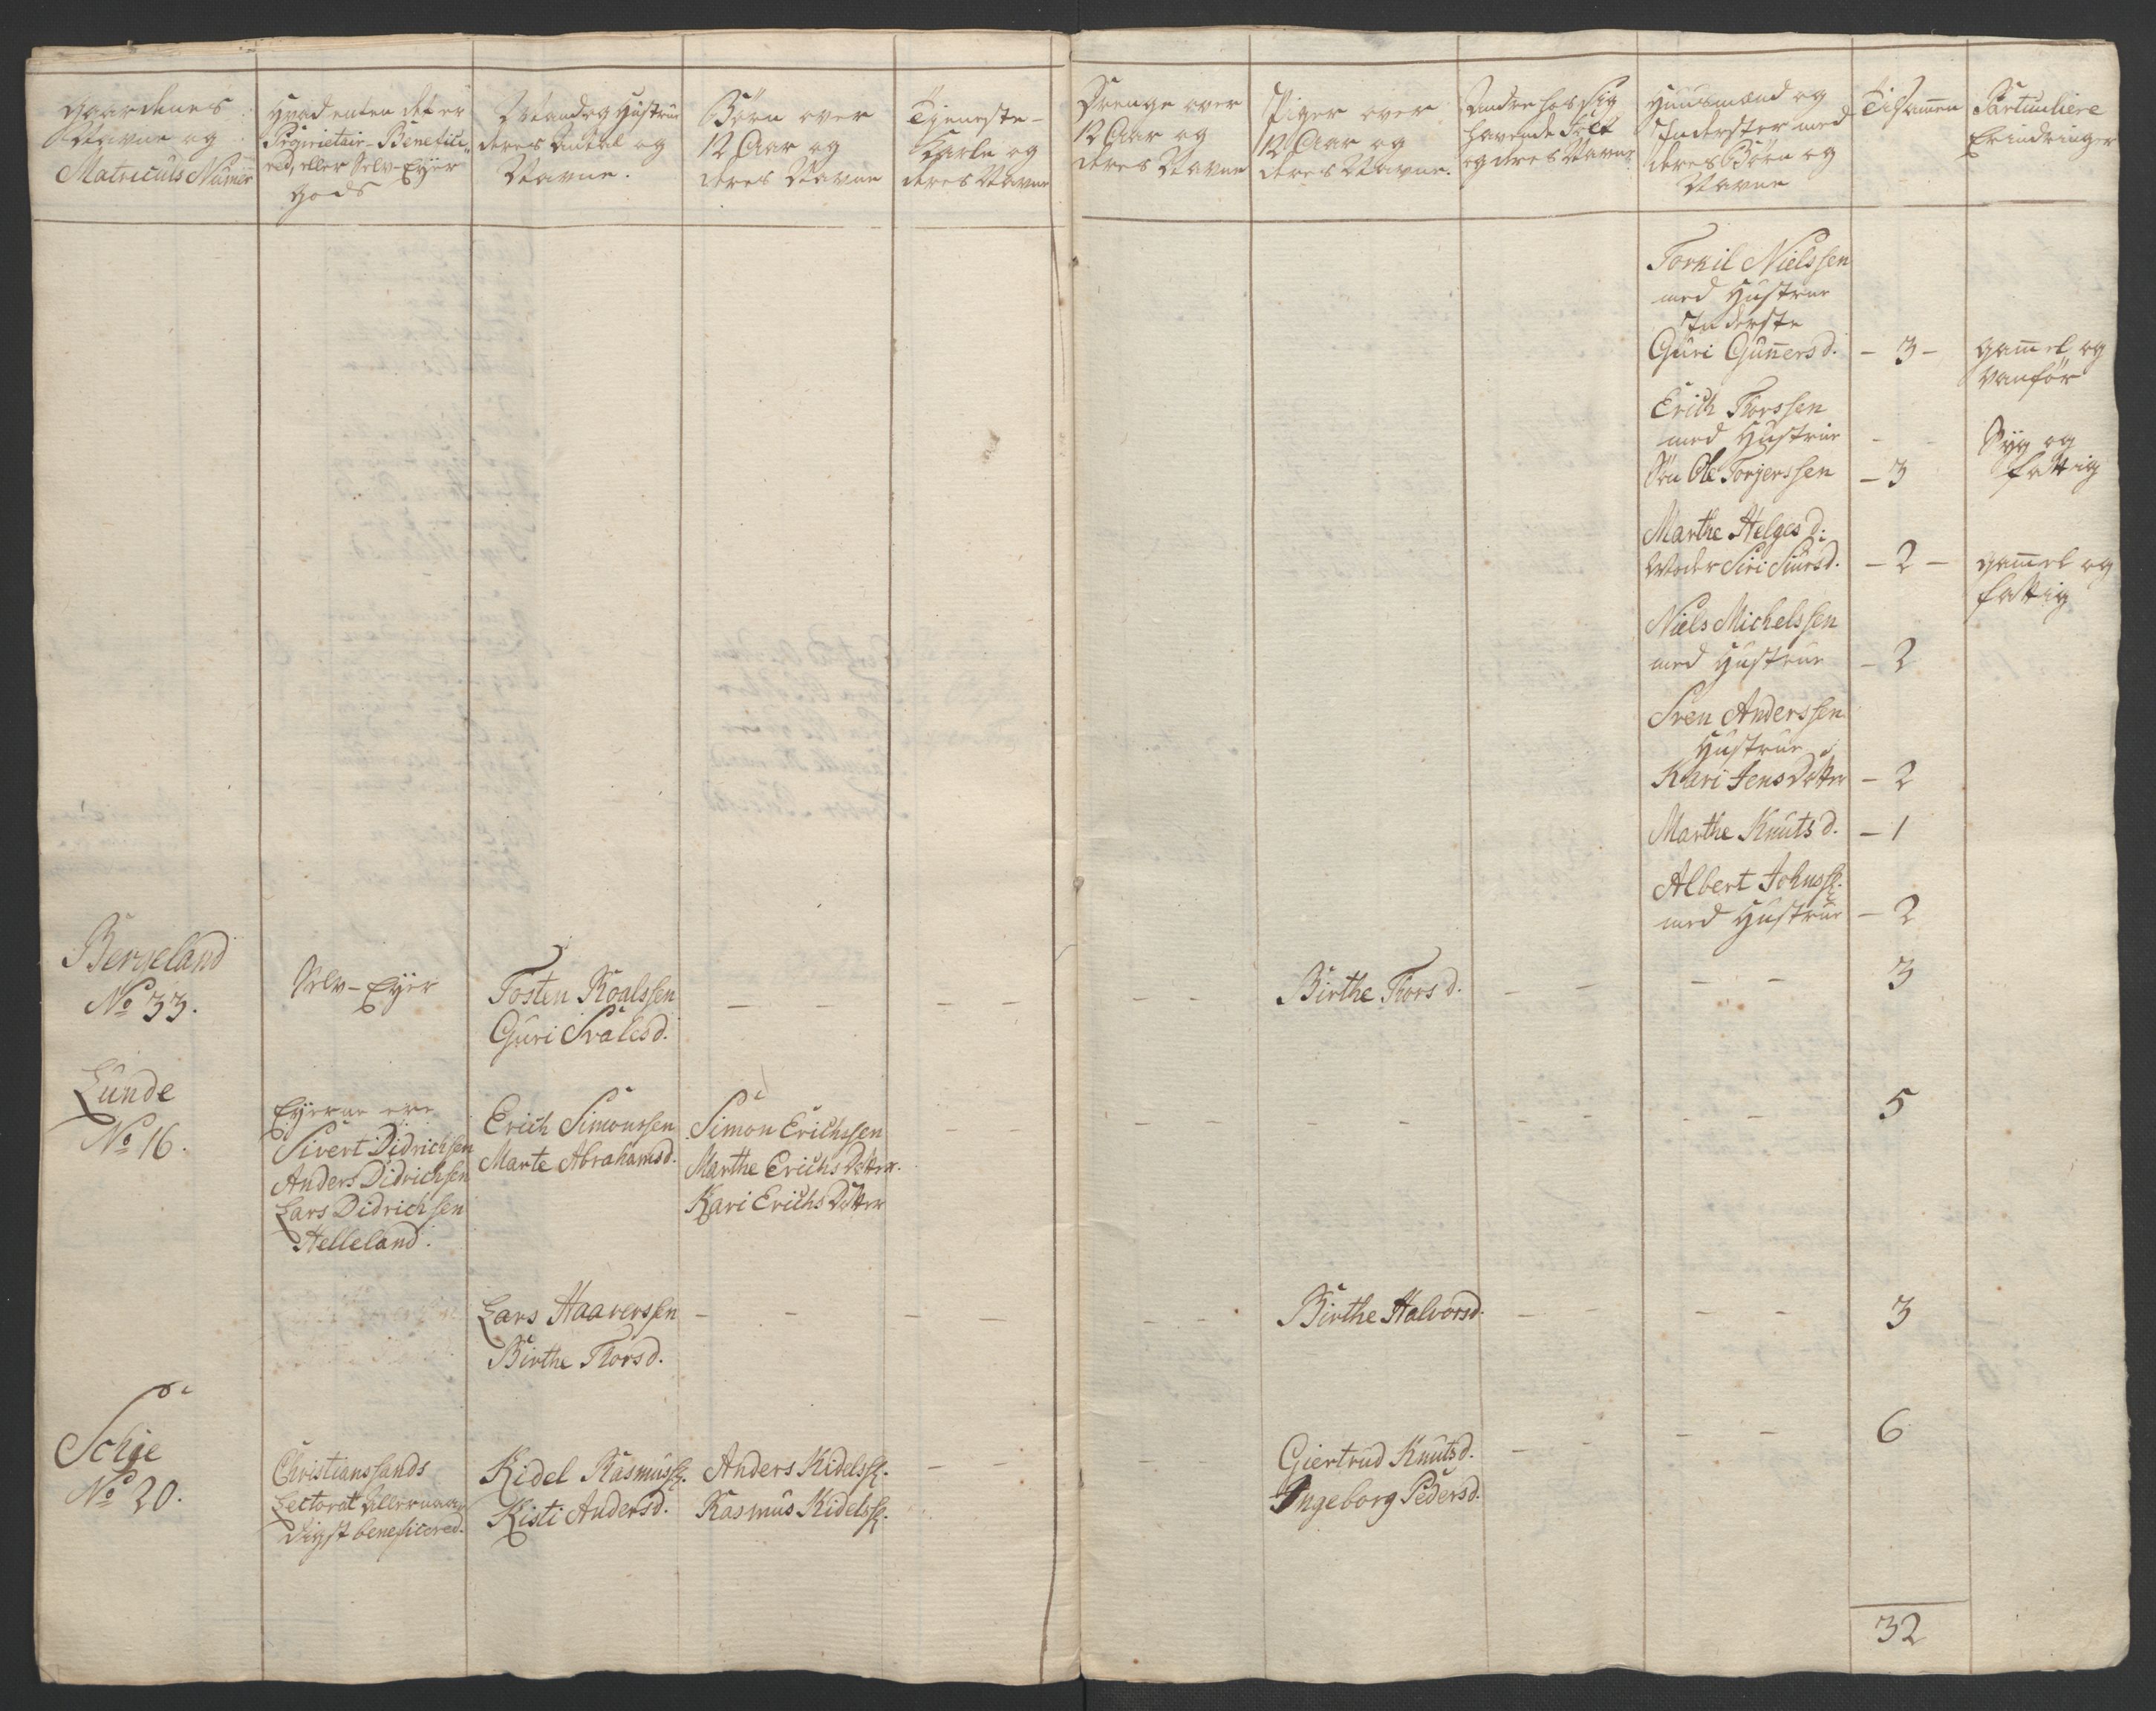 Gaardenes
Navne og
Matriculs Numer
Hvad enten det er
Proprietair-Benefici-
red, eller Selv-Eyer
Gods
Mand og Hustrue
deres Antal og
Navne.
Børn over
12 Aar og
deres Navne
Tieneste-
Karle og
deres Navne
Drenge over
12 Aar og
deres Navne
Piger over
12 Aar og
deres Navne.
Andre hos sig
havende Folk
og deres Navne
Huusmænd og
Inderster med
deres Børn og
Navne
Tilsamen
Particuliere
Erindringer
Torkil Nielssen
med Hustrue
Inderste
Guri Guñersd. - 3 - gamel og
vanför
Erich Thorssen
med Hustrue - - Syg og
Sön Ole Torjerssen - 3 fattig
Marthe Helgesd:
Moder Siri Siursd. - 2 - gamel og
fattig
Niels Michelssen
med Hustrue - 2
Sven Anderssen
Hustrue
Kari Jens Datter - 2
Marthe Knutsd. - 1
Albert Johnss:
med Hustrue - 2
Bergeland
No 33.
Selv-Eyer
Tosten Roalssen
Guri Svalesd.
Birthe Thorsd.
3
Lunde
No 16.
Eyerne ere
Sivert Didrichsen
Anders Didrichsen
Lars Didrichsen
Helleland.
Erich Simonssen
Marte Abrahamsd.
Simon Erichssen
Marthe Erichs Datter.
Kari Erichs Datter
5
Lars Haaverssen
Birthe Thorsd.
Birthe Halvorsd.
3
Schie
No 20.
Christianssands
Lectorat Allernaa-
digst beneficered.
Kidel Rasmuss:
Kisti Andersd.
Anders Kidelss:
Rasmus Kidelss:
Giertrud Knutsd.
Ingeborg Pedersd.
6
32